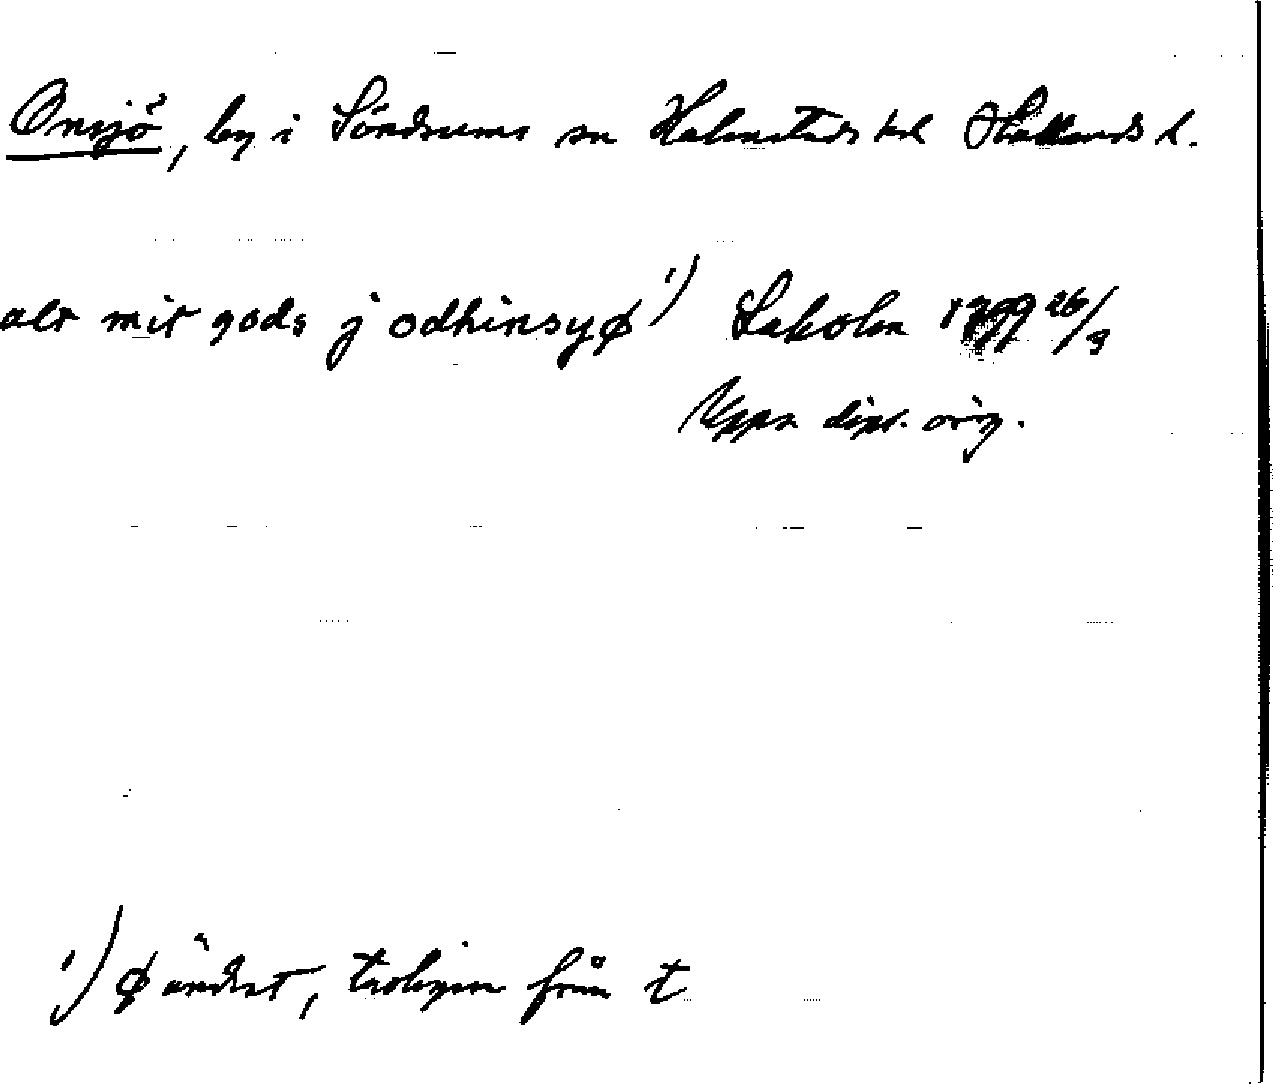 Onsjö, by i Söndrums sn Halmstads hd Hallands l.
alt mit gods j odhinsyø ¹) Laholm 1399 26/3
Upps. dipl. orig.
¹) ø ändrat, troligen från t